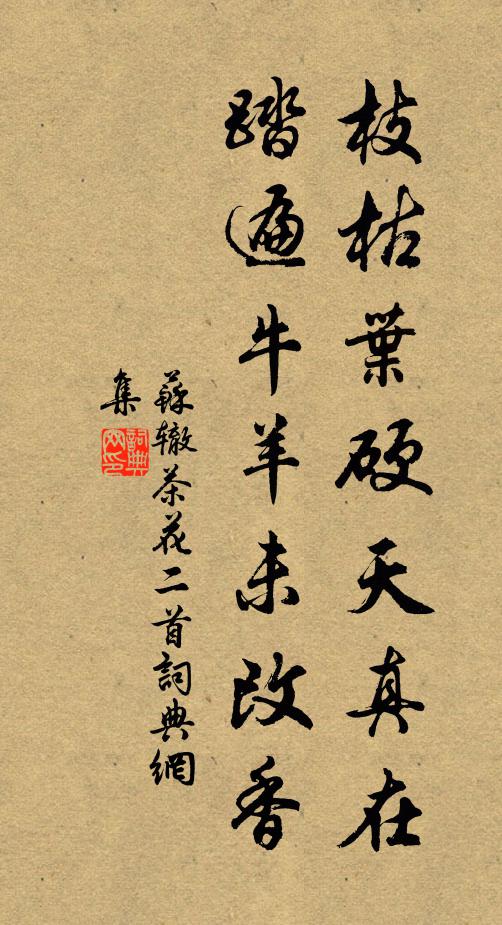 枝枯葉硬天真在
踏遍牛羊未改香
蘇辙茶花二首詞典網
集
詞典
网印